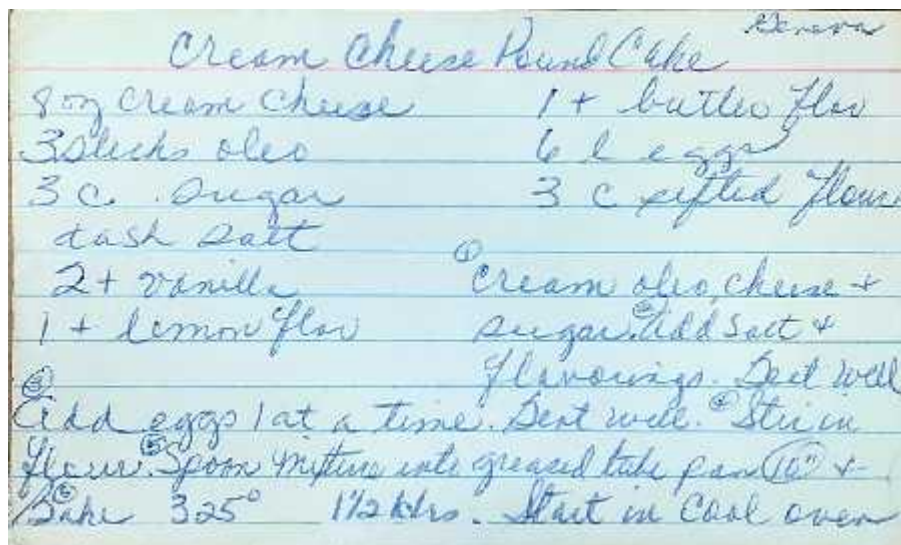 Geneva
Cream Cheese Pound Cake
8 oz cream cheese
3 sticks oleo
3 c. sugar
dash salt
2 t vanilla
1 t lemon flav
1 t butter flav
6 l eggs
3 c sifted flour
① Cream oleo, cheese +
sugar. ② Add salt +
flavorings. Beat well
③
Add eggs 1 at a time. Beat well. ④ Stir in
flour. ⑤ Spoon mixture into greased tube pan (10") +
⑥ Bake 325° 1 1/2 hrs. Start in cool oven